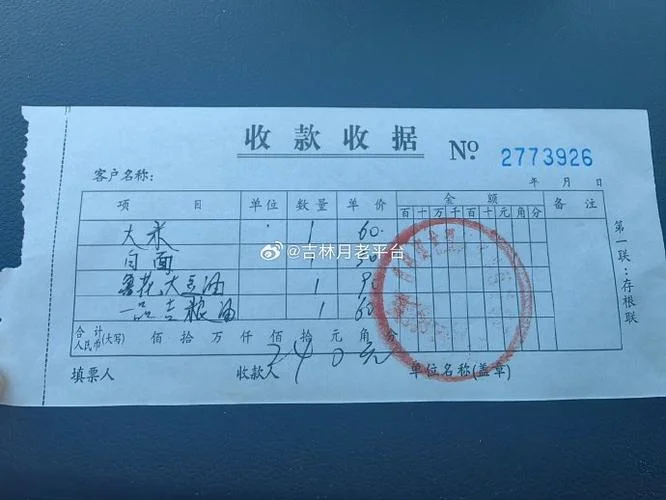 收款收据 № 2773926
客户名称: 年 月 日
项 目 单位 数量 单价 金额 备注
百 十 万 千 百 十 元 角 分
大米 1 60.
白面 1
大豆油 1
一品吉粮油 1 60
合计人民币(大写) 佰 拾 万 仟 佰 拾 元 角 分
240元
填票人 收款人 单位名称(盖章)
第一联:存根联
@吉林月老平台